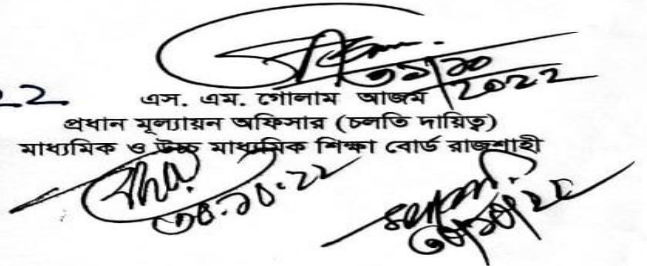 ৩১/১০/2022
22
এস. এম. গোলাম আজম
প্রধান মূল্যায়ন অফিসার (চলতি দায়িত্ব)
মাধ্যমিক ও উচ্চ মাধ্যমিক শিক্ষা বোর্ড রাজশাহী
৩০.১০.২২
৩০/১০/২২